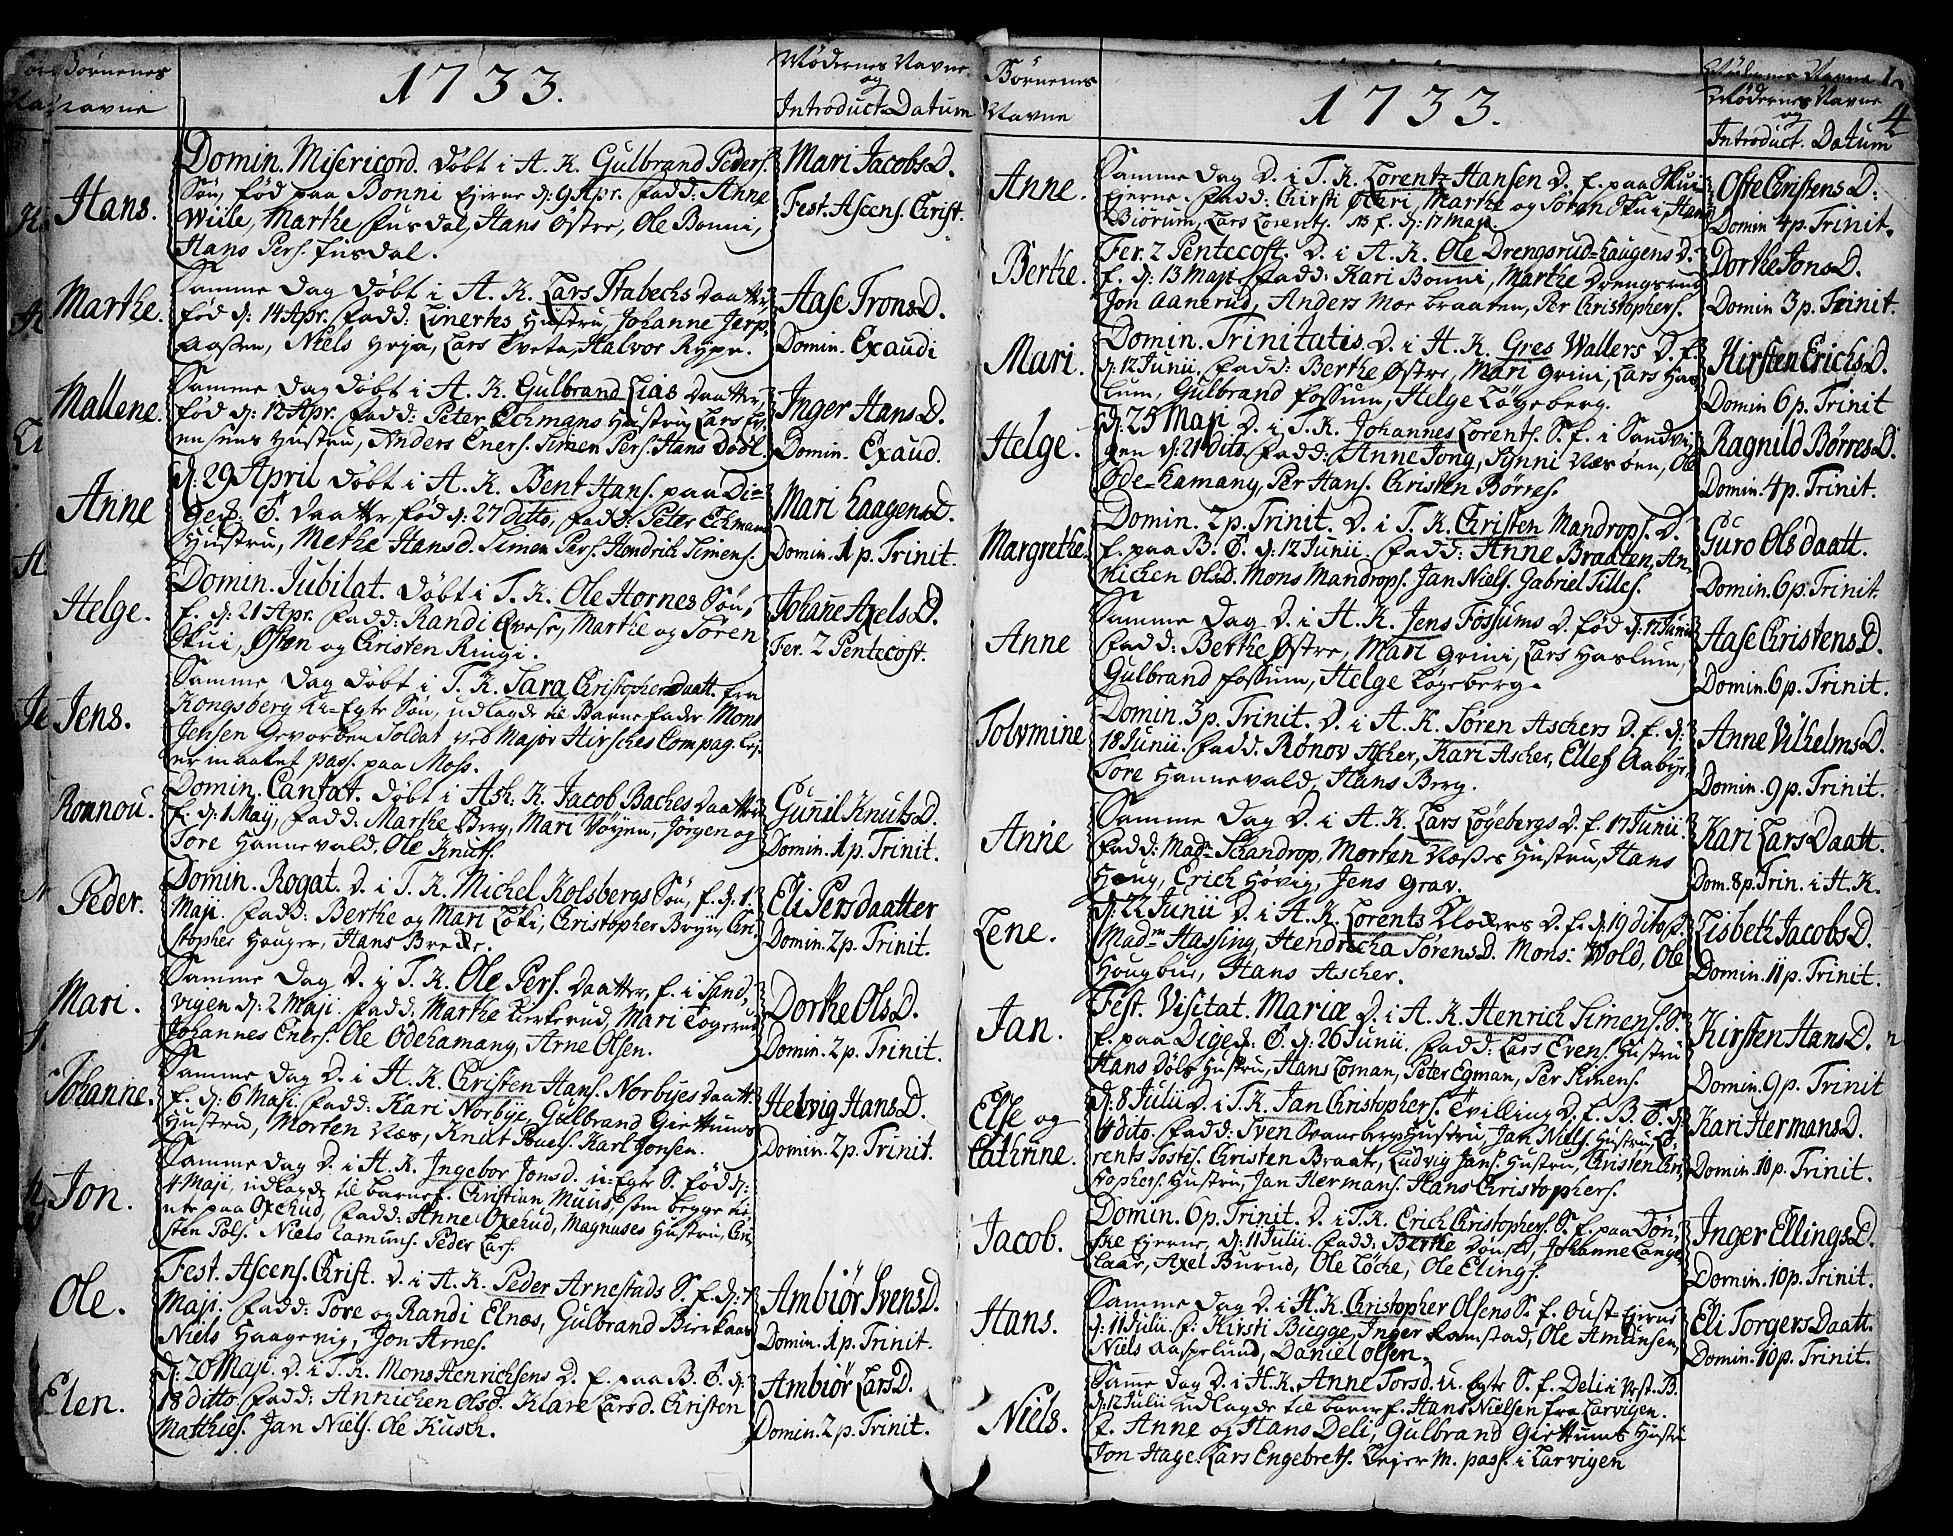 Börnenes
Navne
1733.
Mödernes Navne
og
Introduct. Datum
Hans.
Domin. Misericord. döbt i A. K. Gulbrand Peders.
Sön, föd paa Bonni Ejerne d: 9 Apr. Fadd: Anne
Wiile, Marthe Fusdal, Hans Østre, Ole Bonni,
Hans Pers. Fusdal.
Mari Jacobs D.
Fest. Ascens. Christ.
Marthe.
Samme Dag döbt i A. K. Lars Stabechs Daatter,
föd d: 14 Apr. Fadd: Hustru, Johanne Jerp-
aasen, Niels Lars Tveta, Halvor Rype.
Aase Trons D.
Domin. Exaudi
Mallene.
Samme Dag döbt i A. K. Gulbrand Lias Daatter,
föd d: 12 Apr. Fadd: Peter Echmans Hustru, Lars Ev-
ensens Hustru, Anders Eners. Simen Pers. Hans Döbl.
Inger Hans D.
Domin. Exaud.
Anne
d: 29 April döbt i A. K. Bent Hans. paa Di-
ged. Daatter, föd d: 27 ditto, Fadd: Peter Echmans
Hustru, Methe Hansd. Simen Pers. Hendrich Simens.
Mari Haagens D.
Domin. 1 p. Trinit.
Helge.
Domin. Jubilat. döbt i T. K. Ole Hornes Sön,
f. d: 21 Apr. Fadd: Randi Marthe og Sören
Skui, Østen og Christen Ringi.
Johanne Axels D.
Fer. 2 Pentecost.
Jens.
Samme Dag döbt i T. K. Sara Christophers Daatt. fra
Kongsberg U-Egte Sön, udlagde til Barnefader Mons
Jensen Gevorben Soldat ved Major Hirsches Compag. Lej-
ermaalet pass. paa Moss.
Ronnou.
Domin. Cantat. döbt i Ask. K. Jacob Baches Daatter
f. d: 1 Maij, Fadd: Marthe Berg, Mari Vöyen, Jörgen og
Tore Hannevald, Ole Knuts.
Gunil Knuts D.
Domin. 1 p. Trinit.
Peder.
Domin. Rogat. D. i T. K. Michel Kolsbergs Sön, f. d: 1.
Maji. Fadd: Berthe og Mari Löki, Christopher Bryn, Chri-
stopher Hauger, Hans Brede.
Eli Persdaatter
Domin. 2 p. Trinit.
Mari.
Samme Dag D. i T. K. Ole Pers. Daatter, f. i Sand-
vigen d: 2 Maji. Fadd: Marthe Kierkerud, Mari Togerud
Johannes Eners. Ole Ødehamang, Arne Olsen.
Dorthe Ols D.
Domin. 2 p. Trinit.
Johanne.
Samme Dag D. i A. K. Christen Hans. Norbyes Daatt.
f. d: 6 Maji. Fadd: Kari Norbye, Gulbrand Giettums
Hustru, Morten Næs, Knut Karl Jonsen.
Helvig Hans D.
Domin. 2 p. Trinit.
Jon.
Samme Dag D. i A. K. Ingebor Jonsd. U-Egte S. föd d:
4 Maji, udlagde til Barnef. Christian Muus, som begge tie-
nte paa Oxehud, Fadd: Anne Oxehud, Magnuses Hustru, Chri-
sten Pols. Niels Peder Lars.
Ole.
Fest. Ascens. Christ. D. i A. K. Peder Arnestads S. f. d: 7
Maji. Fadd: Tore og Randi Elnæs, Gulbrand Bierkaas
Niels Haagenig, Jon Arnes.
Ambiör Svens D.
Domin. 1 p. Trinit.
Elen.
d: 20 Maji. D. i T. K. Mons Henrichsens D. f. paa B. d:
18 ditto. Fadd: Annichen Olsd. Klare Larsd. Christen
Matthies. Jan Niels. Ole Kusch.
Ambiör Lars D.
Domin. 2 p. Trinit.
Börnenes
Navne
1733.
Mödernes Navne
Mödernes Navne
og
Introduct. Datum
4
Anne.
Samme Dag D. i T. K. Lorentz Hansen D. f. paa Skui
Ejerne. Fadd: Chirsti Marthe og Sören Skui, Hans
Biorum, Lars Lorents. NB f. d: 17 Maji.
Oste Christens D.
Domin 4 p. Trinit.
Berthe.
Fer. 2 Pentecost. D. i A. K. Ole Drengsrud-Haugens D.
f. d: 13 Maji Fadd: Kari Bonni, Marthe Drengsrud
Jon Aanerud, Anders Moe Braaten, Per Christophers.
Dorthe Jons D.
Domin 3 p. Trinit.
Mari.
Domin. Trinitatis D. i H. K. Gres Wallers D. f.
d: 12 Junii. Fadd: Berthe Østre, Mari Grini, Lars Has-
lum, Gulbrand Fossum, Helge Lögeberg.
Kirsten Erichs D.
Domin 6 p. Trinit
Helge.
d: 25 Maji D. i T. K. Johannes Lorents. S. f. i Sandvi-
gen d: 21 dito. Fadd: Anne Jong, Synni Næsöen, Ole
Øde-Hamang, Per Hans. Christen Börres.
Ragnild Börres D.
Domin. 4 p. Trinit.
Margrethe.
Domin. 2 p. Trinit. D. i T. K. Christen Mandrops. D.
f. paa B. d: 12 Junii. Fadd: Anne Braaten, An-
nichen Olsd. Mons Mandrops. Jan Niels. Gabriel Tilles.
Guro Ols daatt.
Domin. 6 p. Trinit.
Anne
Samme Dag D. i H. K. Jens Fossums D. föd d: 12 Junii
Fadd: Berthe Østre, Mari Grini, Lars Haslum,
Gulbrand Fossum, Helge Lögeberg.
Aase Christens D.
Domin. 6 p. Trinit.
Tolvmine
Domin. 3 p. Trinit. D. i A. K. Sören Aschers D. f. d:
18 Junii. Fadd: Rönov Ascher, Kari Ascher, Ellef Aabye,
Tore Hannevald, Hans Berg.
Anne Vilhelms D.
Domin. 9 p. Trinit.
Anne
Samme Dag D. i A. K. Lars Lögebergs D. f. 17 Junii.
Fadd: Madm Schandrop, Morten Næsses Hustru, Hans
Haug, Erich Hövig, Jens Grav.
Kari Lars Daatt.
Dom. 8 p. Trin. i H. K.
Lene.
d: 22 Junii D. i A. K. Lorents Klochers D. f. d: 19 dito, F.
Madm Hassing, Hendricha Sörens D. Mons: Wold, Ole
Hougbue, Hans Ascher.
Lisbeth Jacobs D.
Domin. 11 p. Trinit.
Jan.
Fest. Visitat. Mariæ D. i A. K. Henrich Simens. S.
f. paa Diged. d: 26 Junii. Fadd: Lars Evens. Hustru
Hans Döls Hustru, Hans Loman, Peter Egman, Per Simens.
Kirsten Hans D.
Domin. 9 p. Trinit
Else og
Cathrine.
d: 8 Julii D. i T. K. Jan Christophers. Tvilling D. f. B. d:
4 dito. Fadd: Sven Svanebergs Hustru, Jan Niels. Hustru, Lo-
rents Tostes. Christen Braate, Ludvig Jans. Hustru, Christen Chri-
stophers. Hustru, Jan Hermans. Hans Christophers.
Kari Hermans D.
Domin. 10 p. Trinit.
Jacob.
Domin. 6 p. Trinit. D. i T. K. Erich Christophers. S. f. paa Dön-
ske Ejerne, d: 11 Julii. Fadd: Berthe Dönske, Johanne Lange-
laar, Axel Burud, Ole Löche, Ole Elings.
Inger Ellings D.
Domin. 10 p. Trinit.
Hans.
Samme Dag D. i H. K. Christopher Olsens S. f. Oust-Ejerne
d: 11 Julii F: Kirsti Bugge, Inger Ramstad, Ole Amunsen,
Niels Aaspelund, Daniel Olsen.
Eli Torgers Daatt.
Domin. 10 p. Trinit.
Niels.
Samme Dag D. i H. K. Anne Torsd. U. Egte S. f. Deli i Vest. B.
d: 12 Julii udlagde til Barnef. Hans Nielsen fra Larvigen.
F. Anne og Hans Deli, Gulbrand Giettums Hustru
Jon Hage. Lars Engebrets. Lejer M. pass. i Larvigen